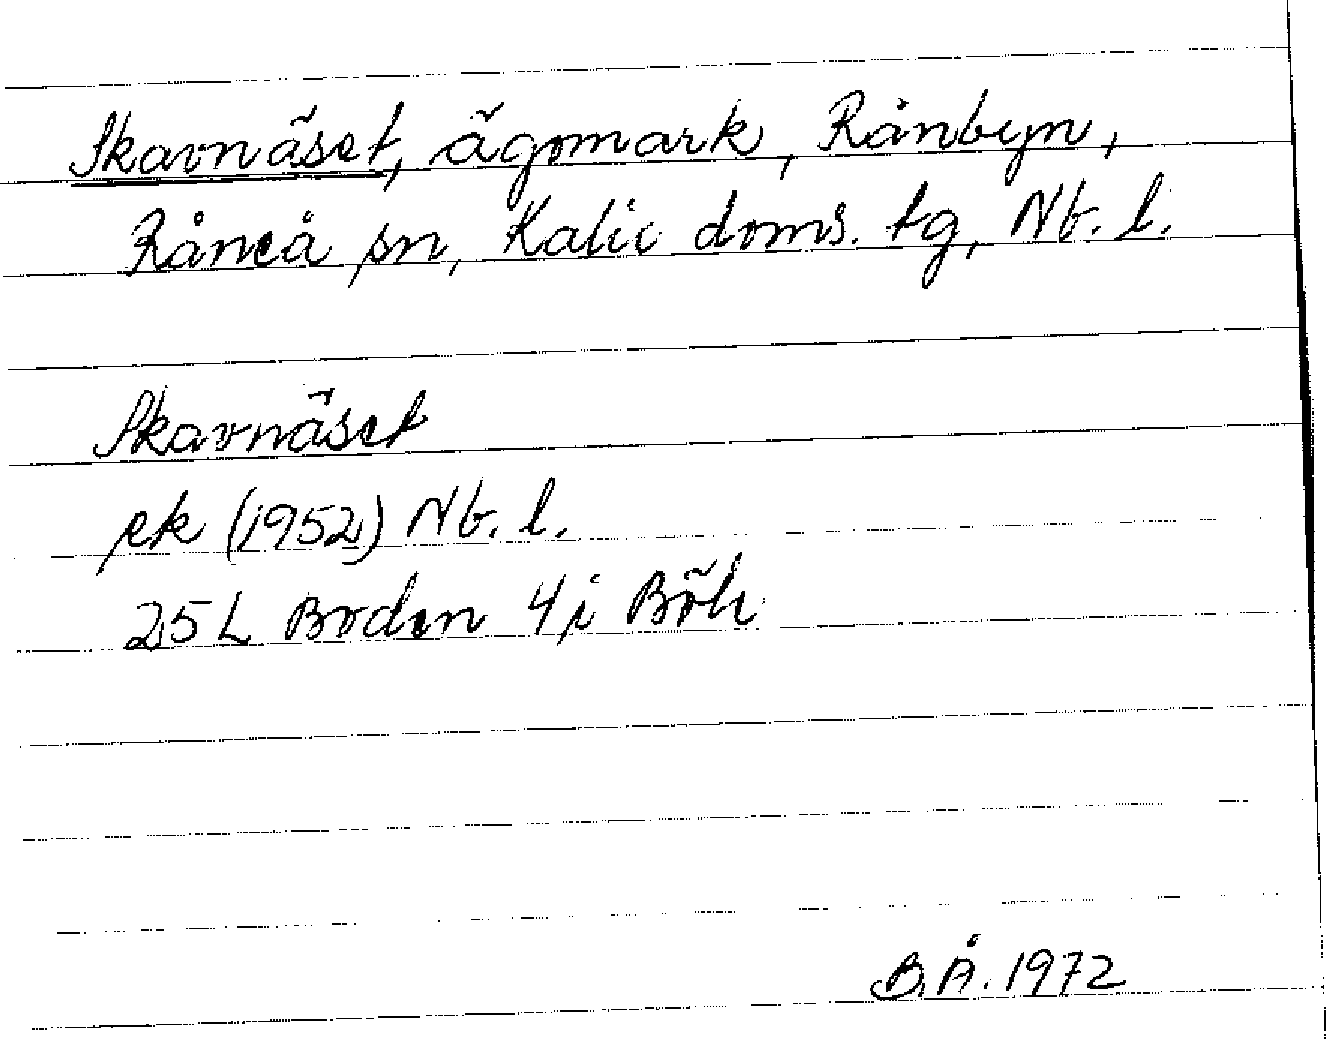 Skavnäset, ägomark, Rånbyn,
Råneå sn, Kalix doms. tg, Nb. l.
Skavnäset
ek (1952) Nb. l.
25 L Boden 4 i Böle
B.Å. 1972